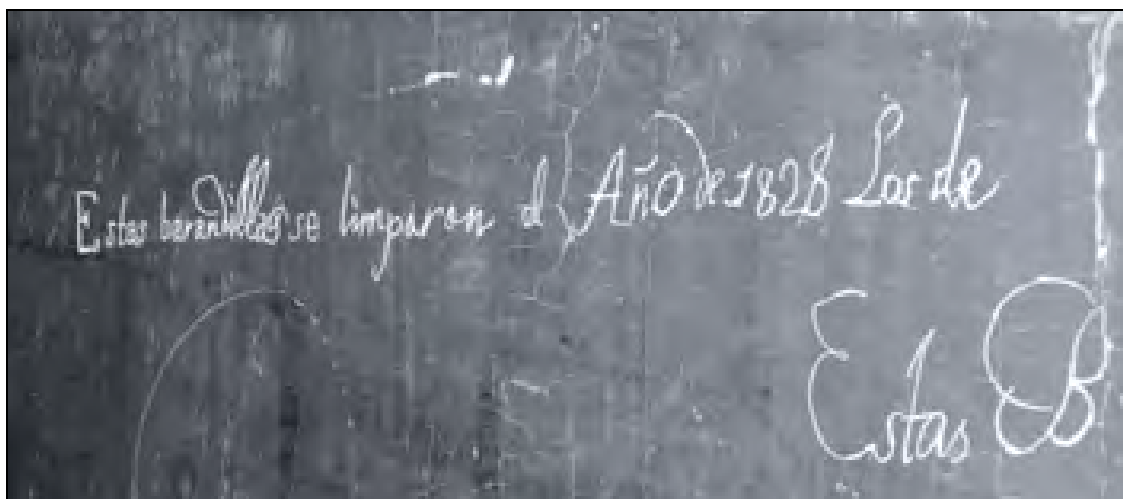 Estas barandillas se limparon el Año de 1828 Las de
Estas B